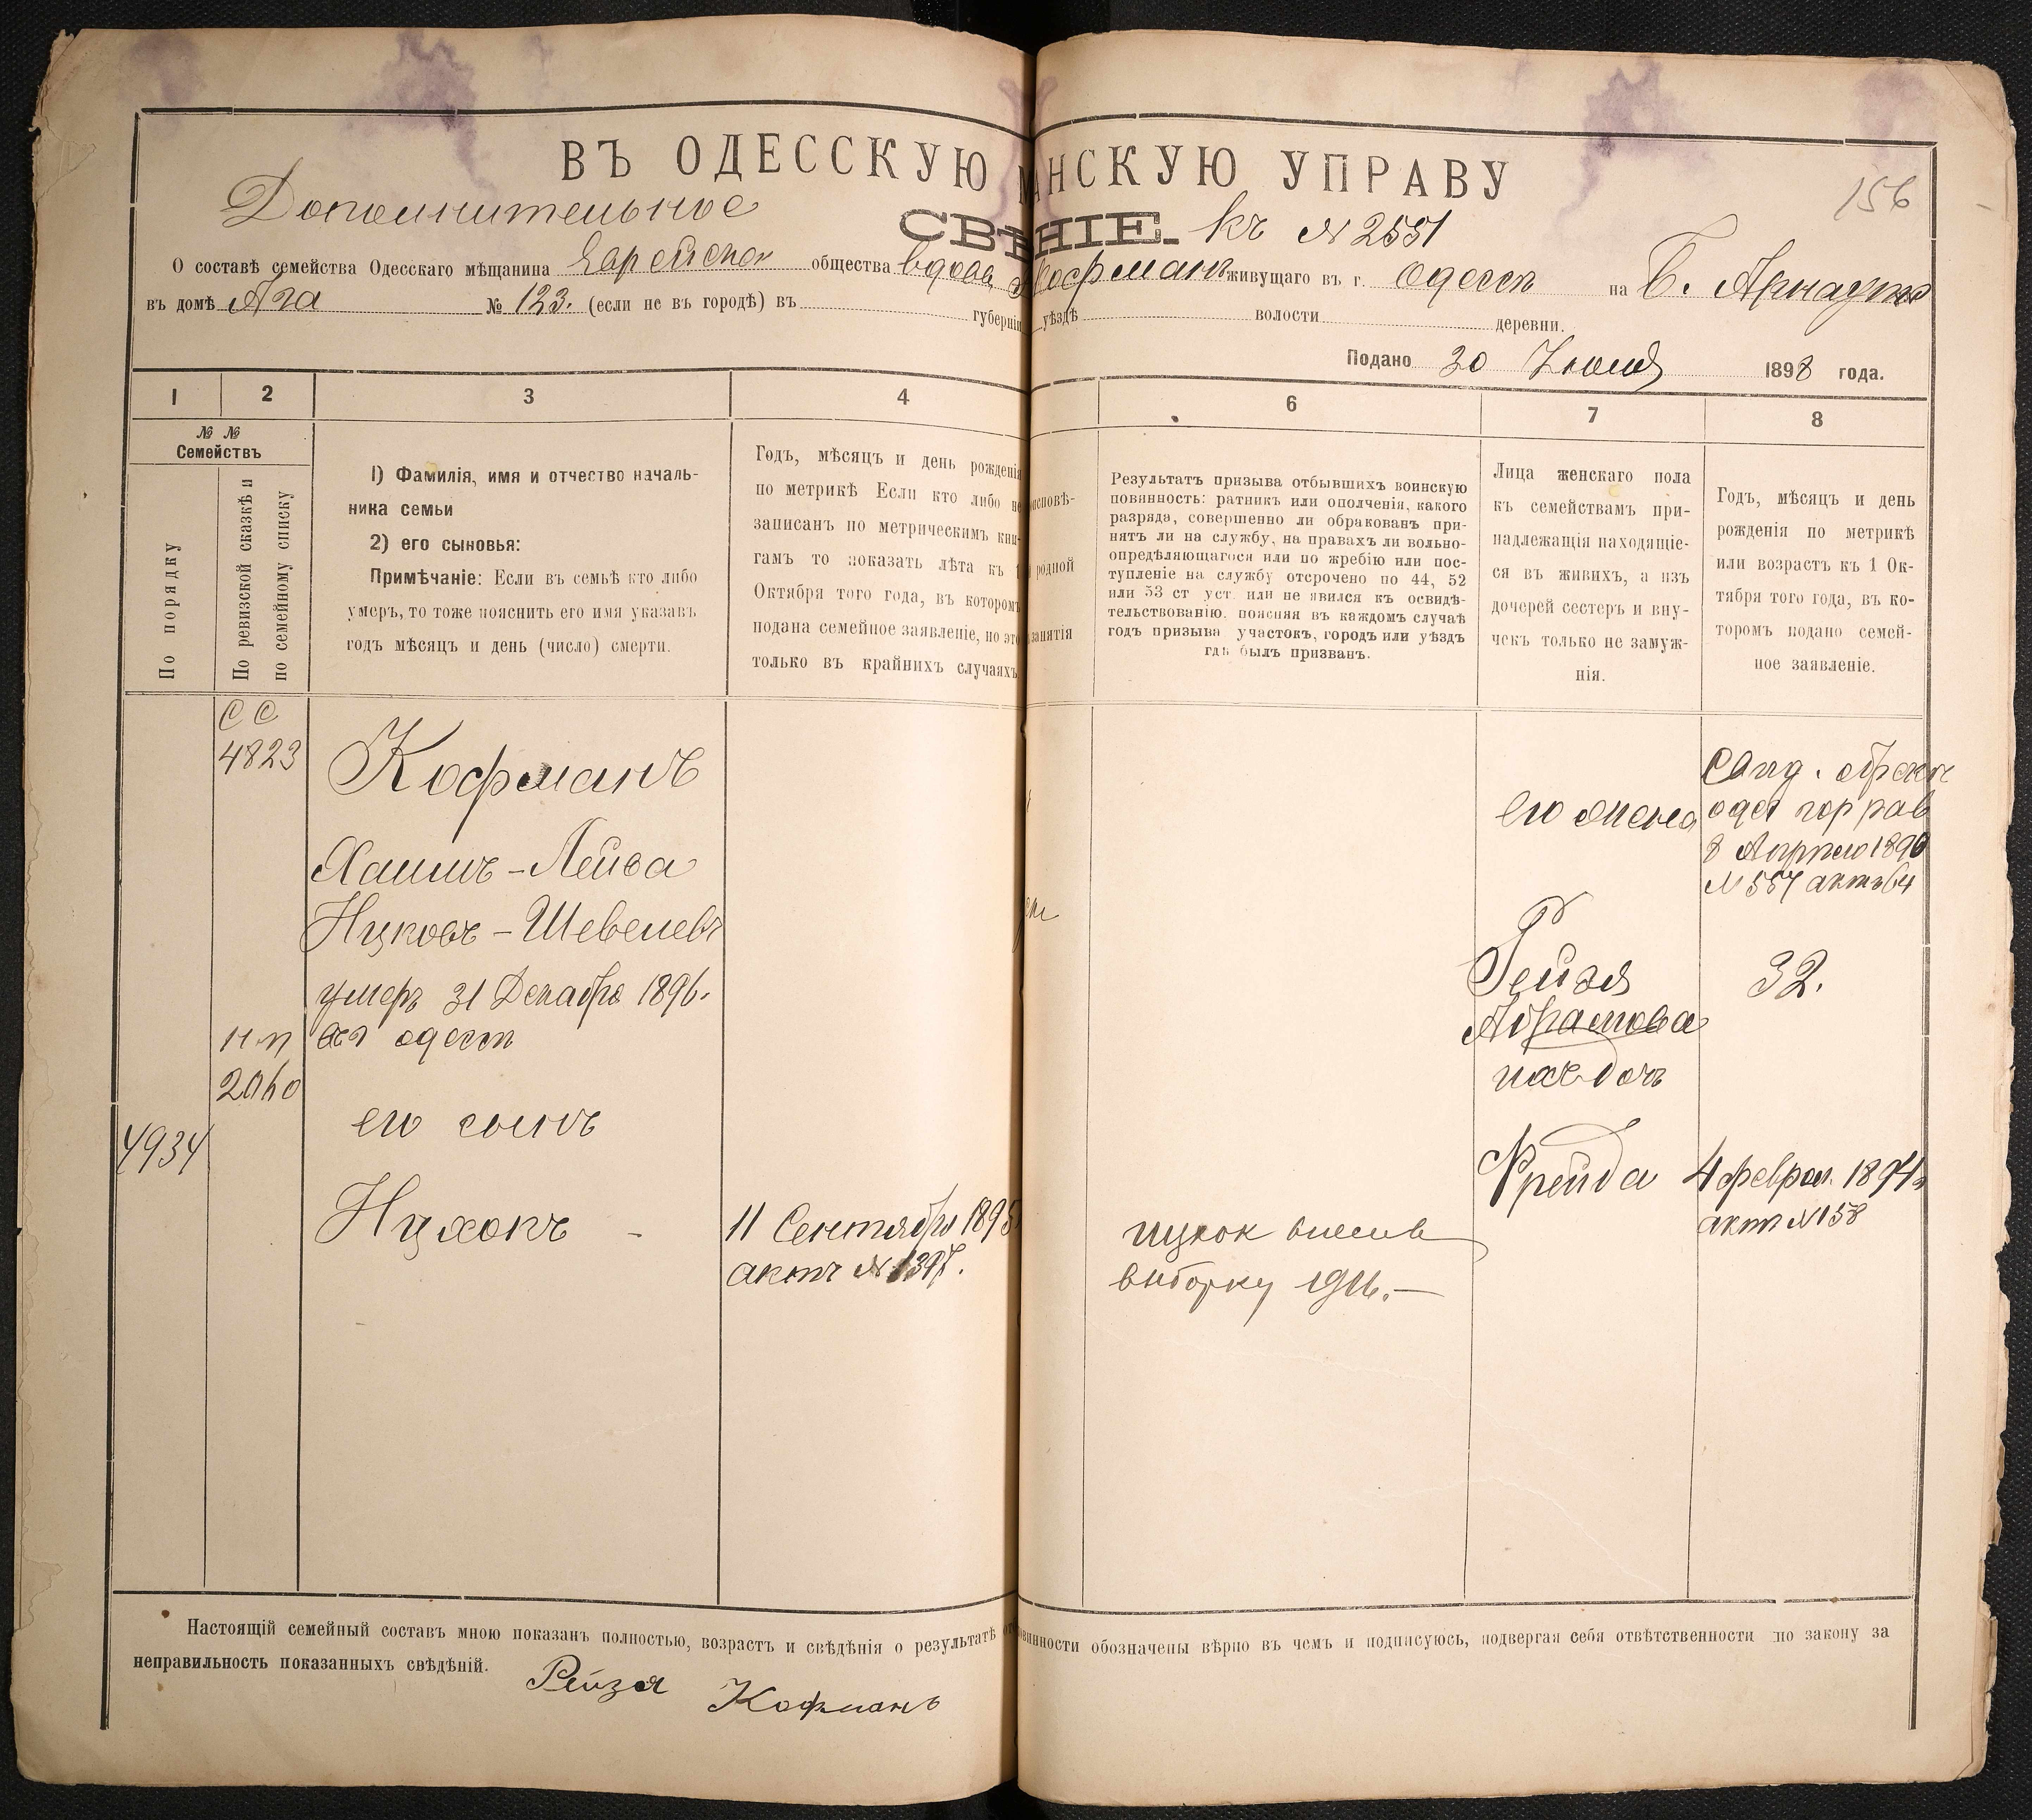 156
ВЪ ОДЕССКУЮ МѢЩАНСКУЮ УПРАВУ
Дополнительное
СВѢДѢНІЕ. къ № 2551
О составѣ семейства Одесскаго мѣщанина Еврейска общества вдова Кофманъ живущаго въ г. Одессѣ на Б. Арнаутс
въ домѣ Ага № 123. (если не въ городѣ) въ губерніи уѣздѣ волости деревни.
Подано 30 Іюля 1898 года.
1 2 3 4 6 7 8
№ №
Семействъ
По порядку
По ревизской сказкѣ и
по семейному списку
1) Фамилія, имя и отчество началь-
ника семьи
2) его сыновья:
Примѣчаніе: Если въ семьѣ кто либо
умеръ, то тоже пояснить его имя указавъ
годъ мѣсяцъ и день (число) смерти.
Годъ, мѣсяцъ и день рожденія
по метрикѣ Если кто либо не
записанъ по метрическимъ кни-
гамъ то показать лѣта къ 1
Октября того года, въ которомъ
подана семейное заявленіе, но это
только въ крайнихъ случаяхъ
исповѣ-
родной
занятія
Результатъ призыва отбывшихъ воинскую
повинность: ратникъ или ополченія, какого
разряда, совершенно ли обракованъ при-
нятъ ли на службу, на правахъ ли вольно-
опредѣляющагося или по жребію или пос-
тупленіе на службу отсрочено по 44, 52
или 53 ст уст. или не явился къ освидѣ-
тельствованію. поясняя въ каждомъ случаѣ
годъ призыва участокъ, городъ или уѣздъ
гдѣ былъ призванъ.
Лица женскаго пола
къ семействамъ при-
надлежащія находящіе-
ся въ живихъ, а изъ
дочерей сестеръ и вну-
чекъ только не замуж-
нія.
Годъ, мѣсяцъ и день
рожденія по метрикѣ
или возрастъ къ 1 Ок-
тября того года, въ ко-
торомъ подано семей-
ное заявленіе.
СС
4823
Кофманъ
Хаимъ-Лейва
Ицковъ-Шевелевъ
умеръ 31 Декабря 1896.
въ одессѣ
н п
2060
его сынъ
4934
Ицхокъ -
11 Сентября 1895
актъ № 1397.
ицхок внесенъ
выборку 1916.-
его жена
Рейзя
Абрамова
ихъ дочь
Фрейда
Свид. о брак
одес гор рав
8 Апрѣля 1890
№ 557 актъ 64
32.
4 феврал. 1894
акт № 158
Настоящій семейный составъ мною показанъ полностью, возрастъ и свѣдѣнія о результатѣ повинности обозначены вѣрно въ чемъ и подписуюсь, подвергая себя отвѣтственности по закону за
неправильность показанныхъ свѣдѣній.
Рейзя Кофманъ